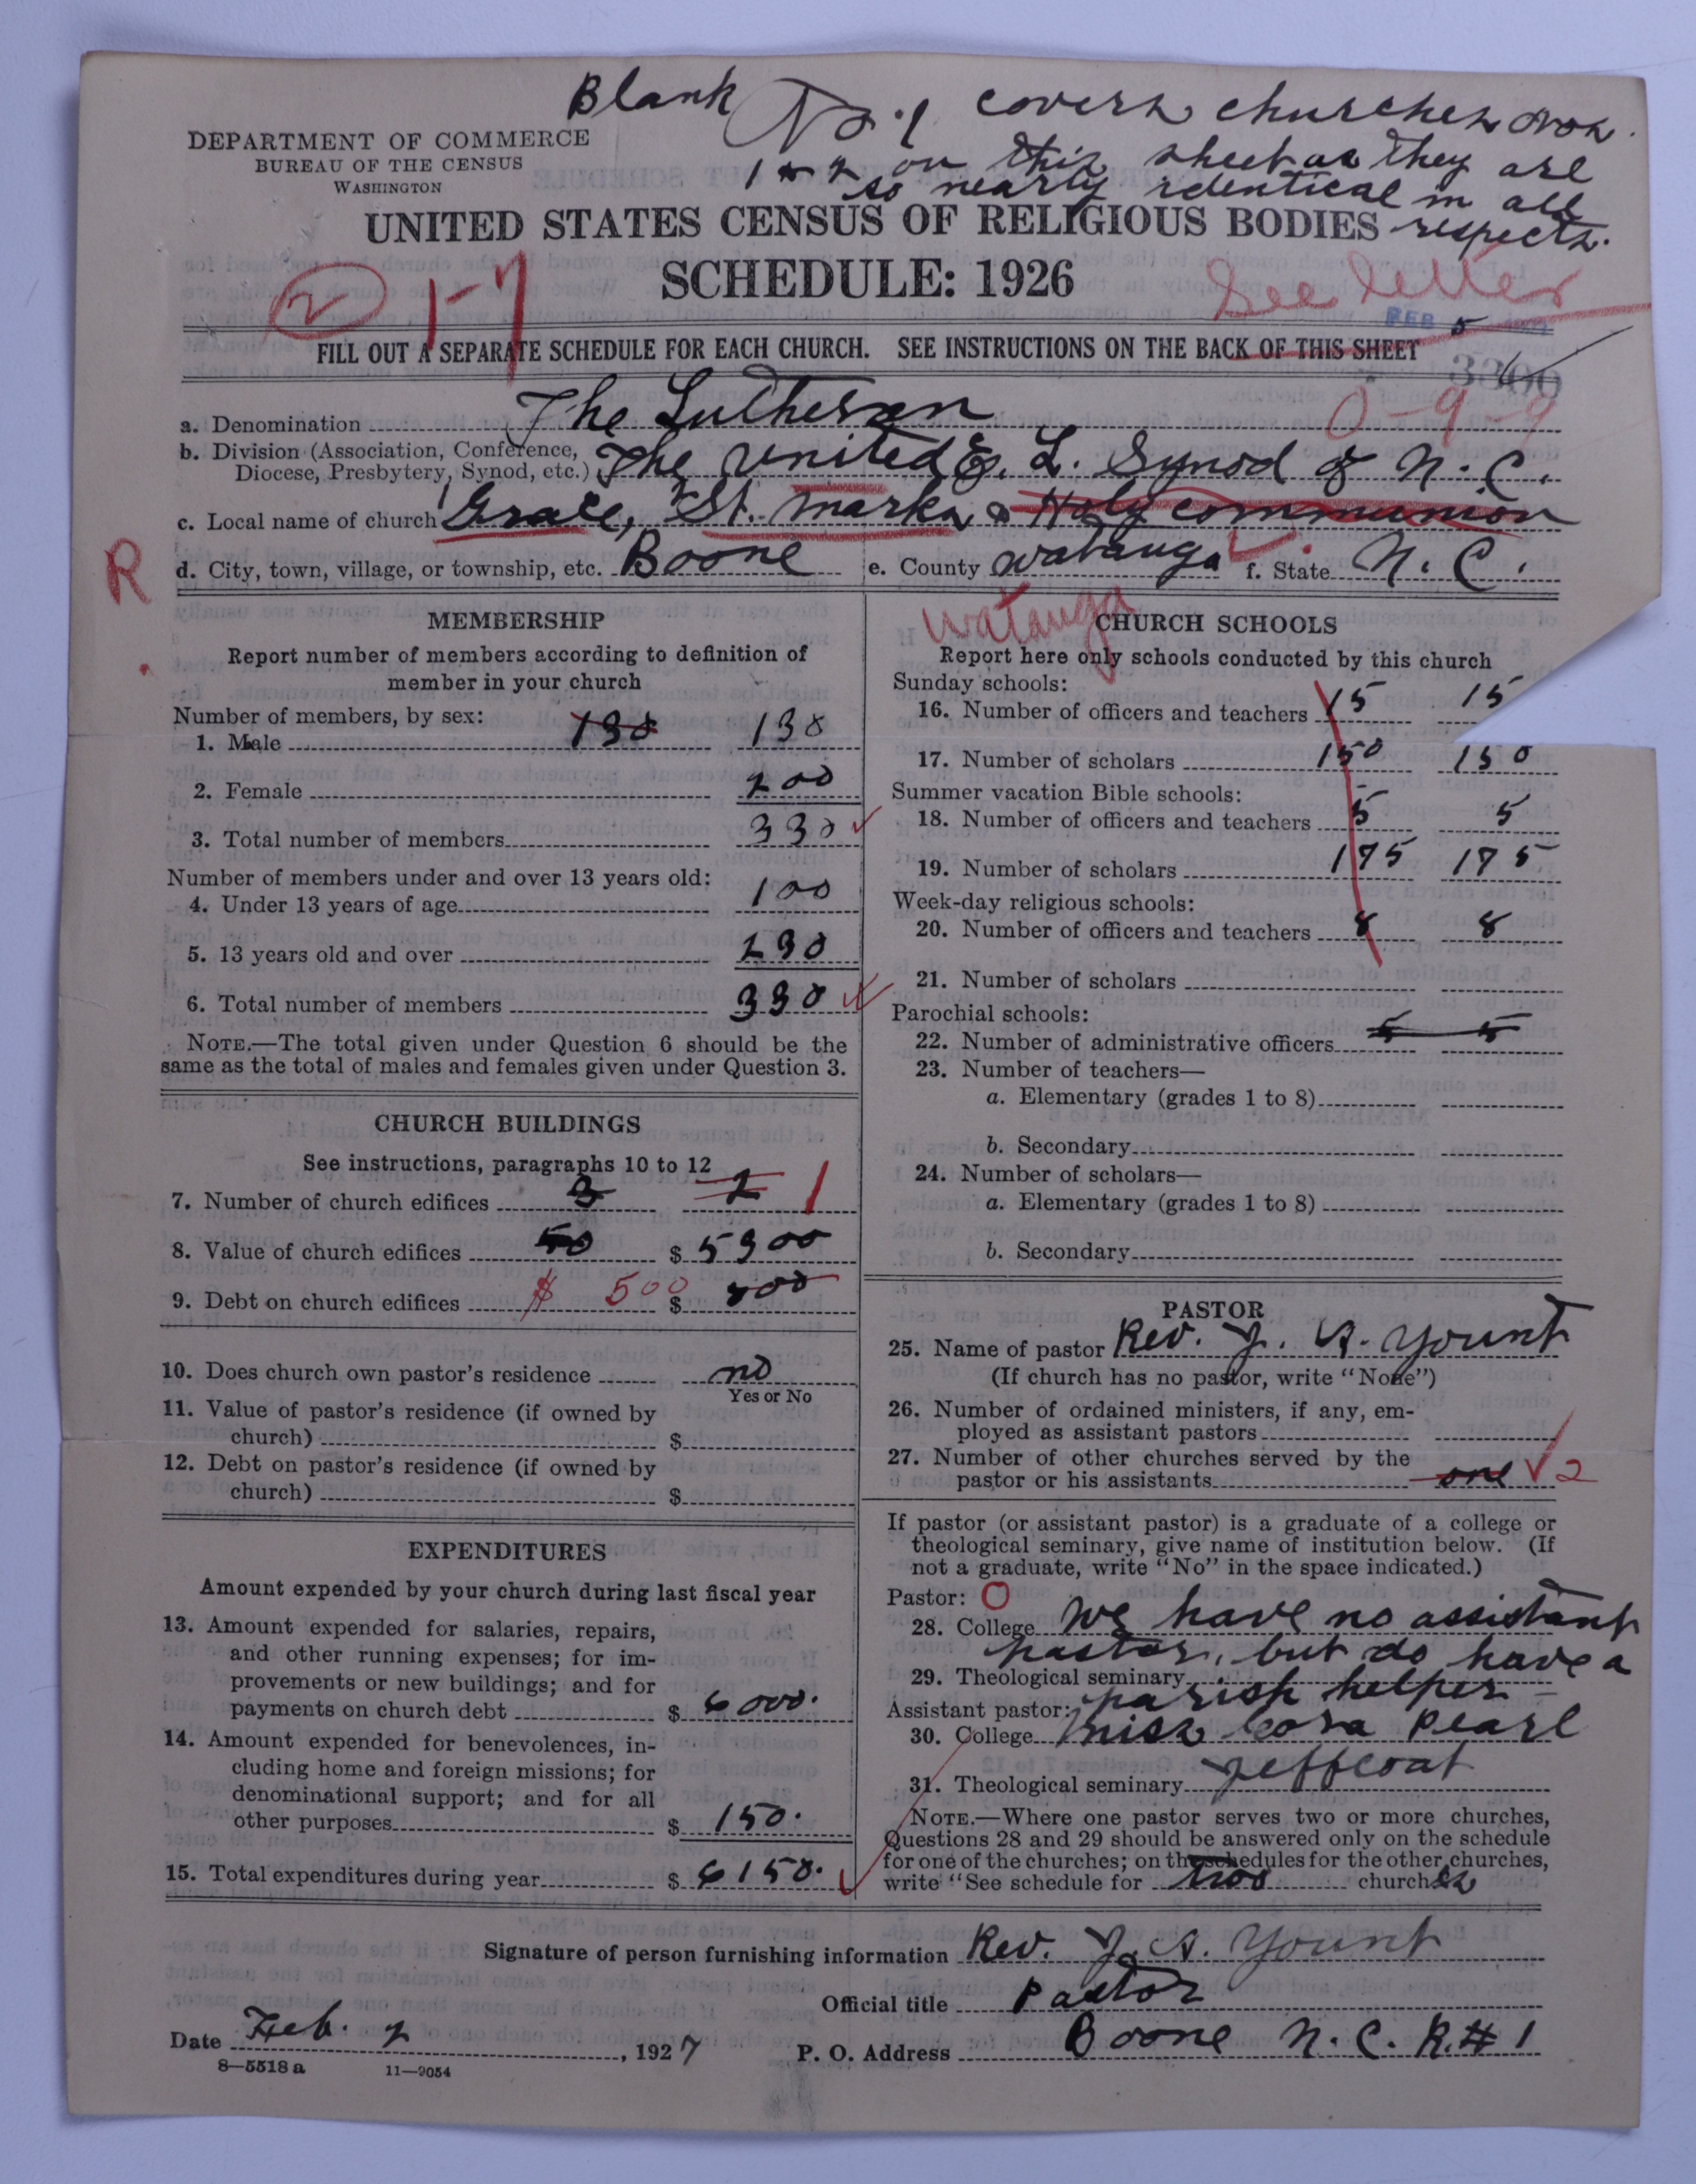 Blank No. 1 covers churches nos.
1 & 2 on this sheet as they are
so nearly identical in all
respects.
DEPARTMENT OF COMMERCE
BUREAU OF THE CENSUS
WASHINGTON
UNITED STATES CENSUS OF RELIGIOUS BODIES
SCHEDULE: 1926
2 1-7
See letter
FEB 5
FILL OUT A SEPARATE SCHEDULE FOR EACH CHURCH. SEE INSTRUCTIONS ON THE BACK OF THIS SHEET
0-9-9
a. Denomination The Lutheran
b. Division (Association, Conference, Diocese, Presbytery, Synod, etc.) The United E. L. Synod of N. C.
c. Local name of church Grace, St. Marks & Holy Communion
R
d. City, town, village, or township, etc. Boone e. County Watauga f. State N. C.
Watauga
MEMBERSHIP
Report number of members according to definition of
member in your church
Number of members, by sex:
1. Male 130 130
2. Female 200
3. Total number of members 330
Number of members under and over 13 years old:
4. Under 13 years of age 100
5. 13 years old and over 230
6. Total number of members 330
NOTE.—The total given under Question 6 should be the
same as the total of males and females given under Question 3.
CHURCH BUILDINGS
See instructions, paragraphs 10 to 12
7. Number of church edifices 3 2 1
8. Value of church edifices 50 $ 5300
9. Debt on church edifices $ 500 $
10. Does church own pastor's residence no
Yes or No
11. Value of pastor's residence (if owned by
church) $
12. Debt on pastor's residence (if owned by
church) $
EXPENDITURES
Amount expended by your church during last fiscal year
13. Amount expended for salaries, repairs,
and other running expenses; for im-
provements or new buildings; and for
payments on church debt $ 6000.
14. Amount expended for benevolences, in-
cluding home and foreign missions; for
denominational support; and for all
other purposes $ 150.
15. Total expenditures during year $ 6150.
CHURCH SCHOOLS
Report here only schools conducted by this church
Sunday schools:
16. Number of officers and teachers 15 15
17. Number of scholars 150 150
Summer vacation Bible schools:
18. Number of officers and teachers 5 5
19. Number of scholars 175 175
Week-day religious schools:
20. Number of officers and teachers 8 8
21. Number of scholars
Parochial schools:
22. Number of administrative officers 5 5
23. Number of teachers—
a. Elementary (grades 1 to 8)
b. Secondary
24. Number of scholars—
a. Elementary (grades 1 to 8)
b. Secondary
PASTOR
25. Name of pastor Rev. J. A. Yount
(If church has no pastor, write "None")
26. Number of ordained ministers, if any, em-
ployed as assistant pastors
27. Number of other churches served by the
pastor or his assistants one 2
If pastor (or assistant pastor) is a graduate of a college or
theological seminary, give name of institution below. (If
not a graduate, write "No" in the space indicated.)
Pastor: O
28. College We have no assistant
pastor, but do have a
29. Theological seminary
Assistant pastor: parish helper
30. College Miss Cora Pearl
31. Theological seminary Jeffcoat
NOTE.—Where one pastor serves two or more churches,
Questions 28 and 29 should be answered only on the schedule
for one of the churches; on the schedules for the other churches,
write "See schedule for two churches
Signature of person furnishing information Rev. J. A. Yount
Official title Pastor
Date Feb. 2, 1927 P. O. Address Boone N. C. R. # 1
8—5518 a 11—9054